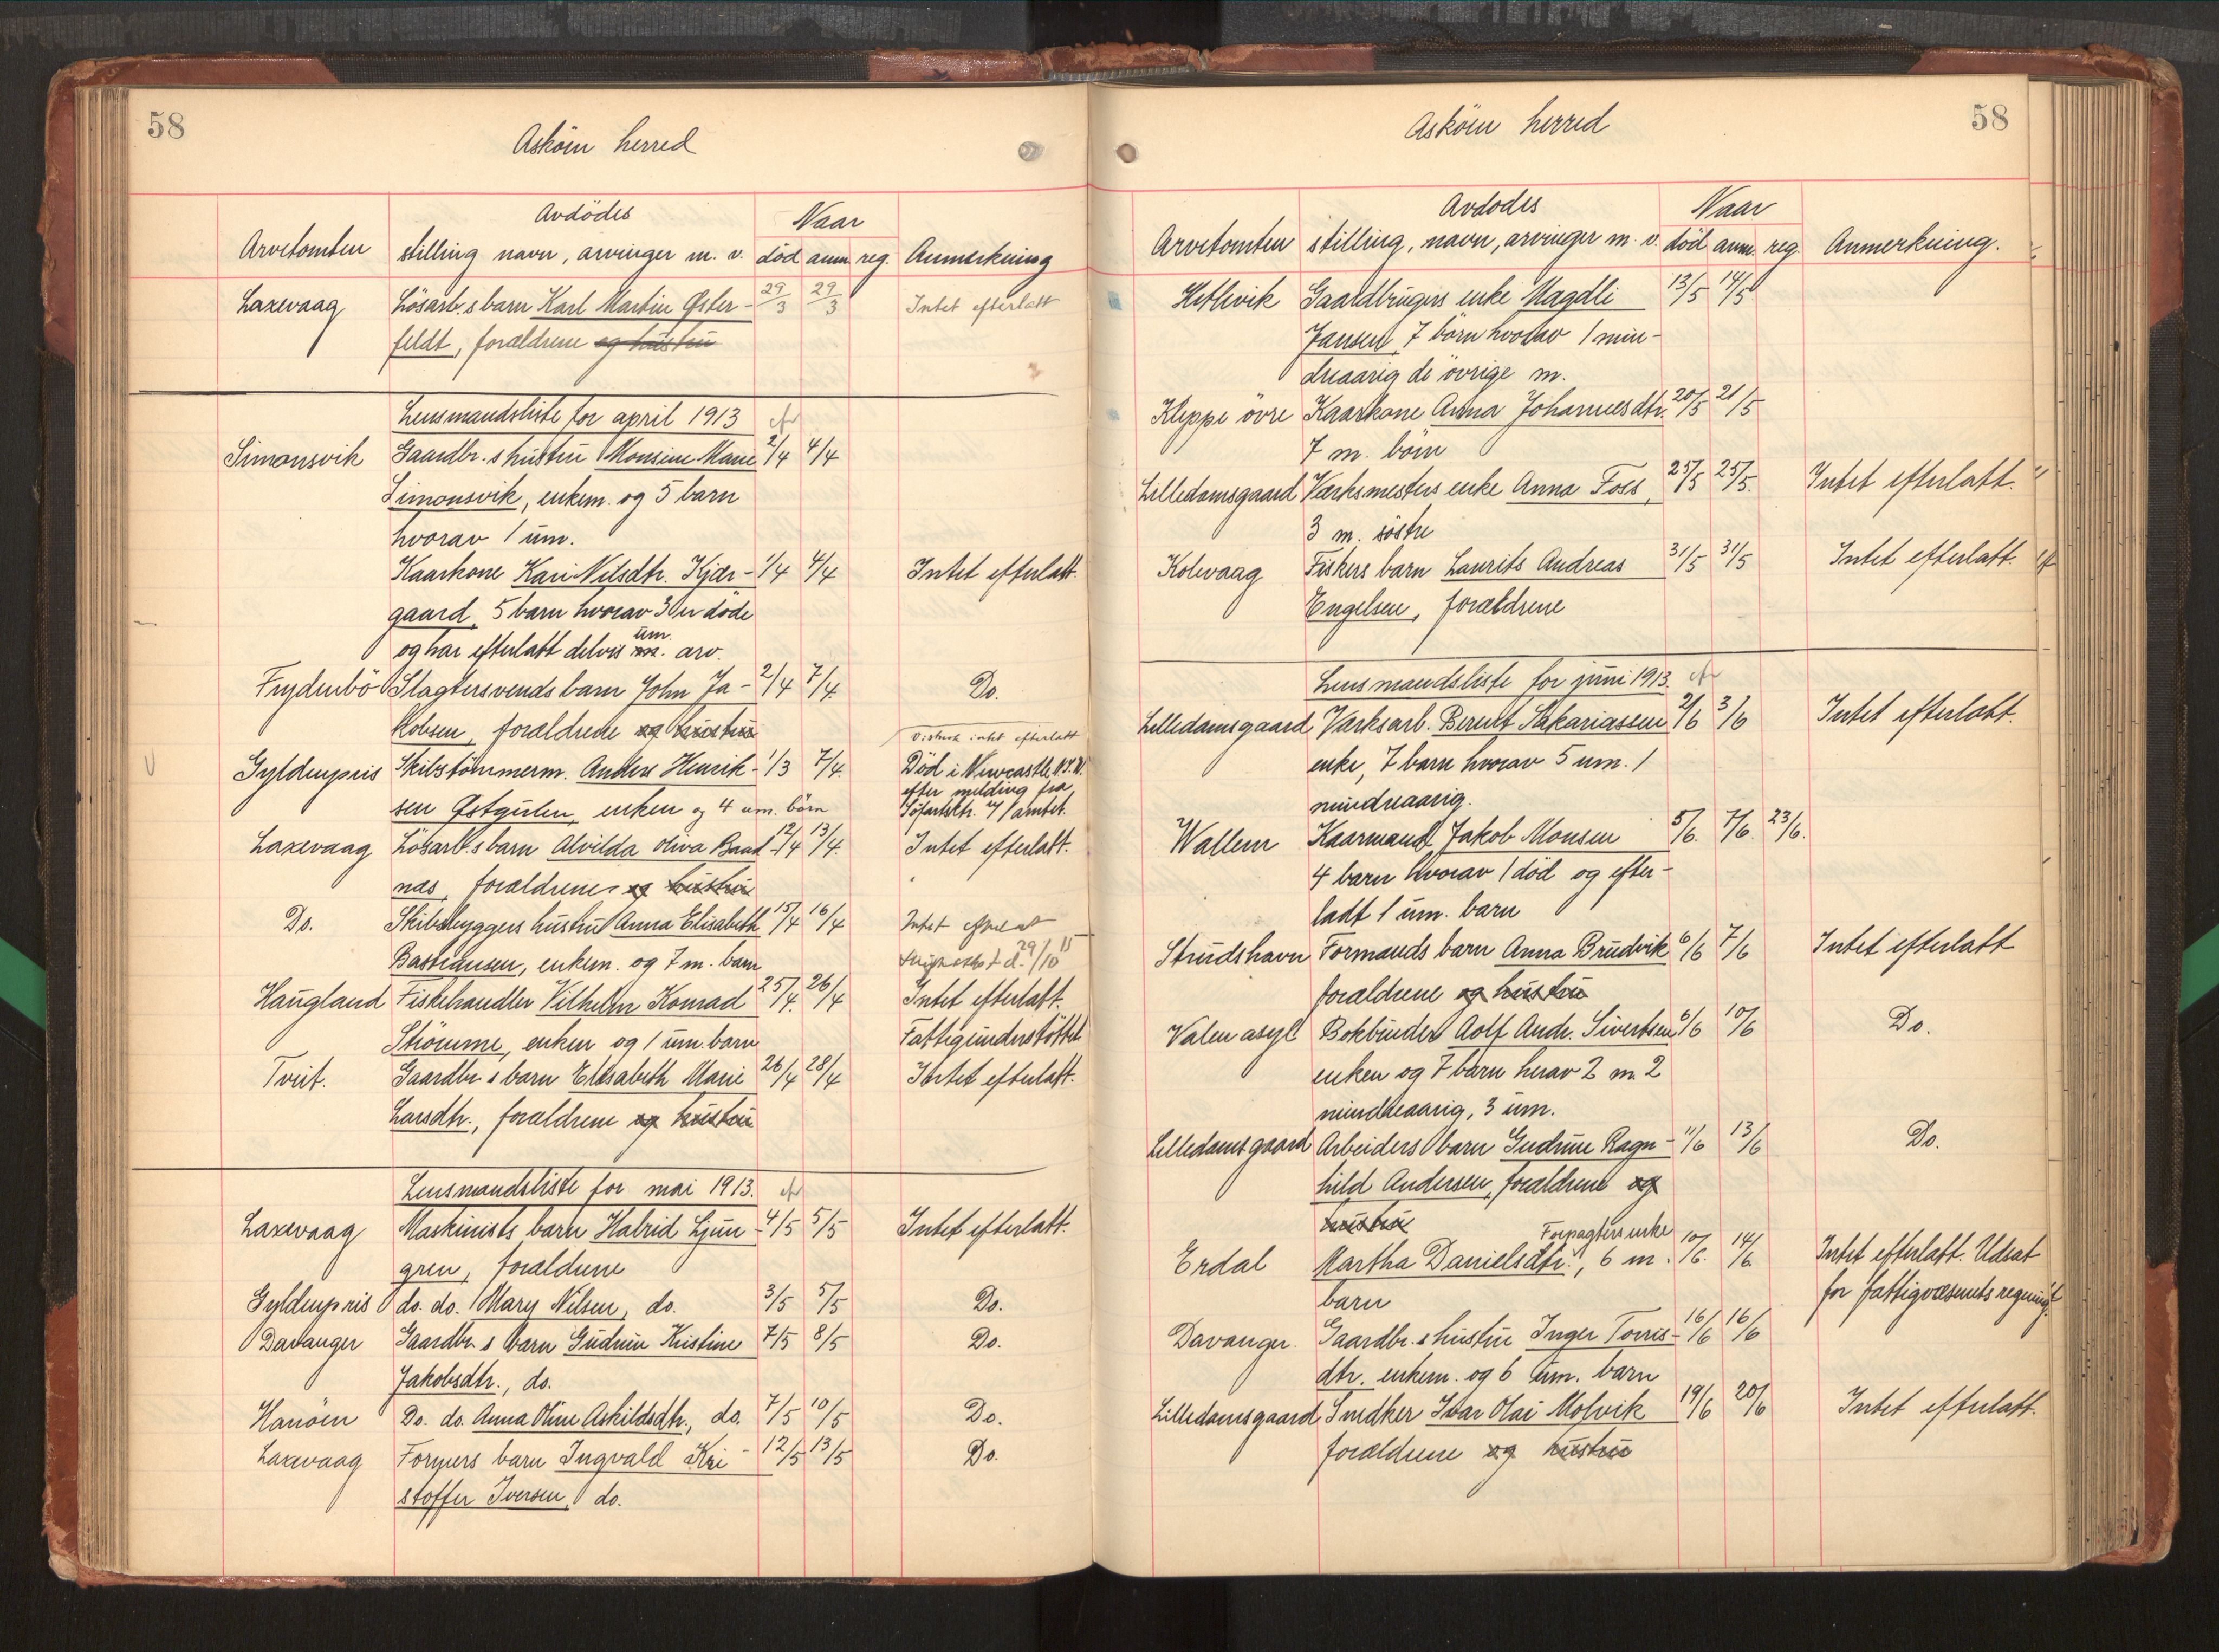 58
Asköen herred
Avdödes
Naar
Arvetomten stilling navn, arvinger m. v. död anm. reg. Anmerkning
Laxevaag Lösarb.s barn Karl Martin Øster- 29/3 29/3 Intet efterlatt
feldt, forældrene og hustru
Lensmandsliste for april 1913
Simonsvik Gaardbr.s hustru Monsine Marie 2/4 4/4
Simonsvik, enkem. og 5 barn
hvorav 1 um.
Kaarkone Kari Nilsdtr. Kjær- 1/4 4/4 Intet efterlatt.
gaard, 5 barn hvorav 3 er döde
um.
og har efterlatt delvis m. arv.
Frydenbö Slagtersvends barn John Ja- 2/4 7/4 Do.
kobsen, forældrene og hustru
intet efterlatt
Gyldenpris Skibstömmerm. Anders Henrik- 1/3 7/4 Död i Newcastle N.S.W.
efter melding fra
sen Østgulen, enken og 4 um. börn
Laxevaag Lösarb.s barn Alvilda Oliva Baad- 12/4 13/4 Intet efterlatt.
nes, forældrene og hustru
Do. Skibsbyggers hustru Anna Elisabeth 15/4 16/4 Intet efterlat
Bastiansen, enkem. og 7 m. barn 29/10 15
Haugland Fiskehandler Vilhelm Konrad 25/4 26/4 Intet efterlatt.
Strömme, enken og 1 um. barn Fattigunderstöttet
Tveit. Gaardbr.s barn Elisabeth Marie 26/4 28/4 Intet efterlatt.
Larsdtr., forældrene og hustru
Lensmandsliste for mai 1913.
Laxevaag Maskinists barn Halvid Ljun- 4/5 5/5 Intet efterlatt.
gren, forældrene
Gyldenpris do. do. Mary Nilsen, do. 3/5 5/5 Do.
Davanger Gaardbr.s barn Gudrun Kristine 7/5 8/5 Do.
Jakobsdtr., do.
Hanöen Do. do. Anna Oline Askildsdtr., do. 7/5 10/5 Do.
Laxevaag Formers barn Ingvald Kri- 12/5 13/5 Do.
stoffer Iversen, do.
58
Asköen herred
Avdödes
Naar
Arvetomten stilling, navn, arvinger m. v. död anm. reg. Anmerkning.
Hetlevik Gaardbrugers enke Magdli 13/5 14/5
Jansen, 7 börn hvorav 1 min-
dreaarig de övrige m.
Kleppe övre Kaarkone Anna Johannesdtr. 20/5 21/5
7 m. börn
Lilledamsgaard Værksmesters enke Anna Foss, 25/5 25/5. Intet efterlatt.
3 m. söstre
Kolevaag Fiskers barn Laurits Andreas 31/5 31/5 Intet efterlatt.
Engelsen, forældrene
Lensmandsliste for juni 1913.
Lilledamsgaard Værksarb. Bernt Sakariassen 2/6 3/6 Intet efterlatt.
enke, 7 barn hvorav 5 um. 1
mindreaarig.
Wallem Kaarmand Jakob Monsen 5/6. 7/6. 23/6.
4 barn hvorav 1 död og efter-
ladt 1 um. barn
Strudshavn Formands barn Anna Brudvik 6/6 7/6 Intet efterlatt
forældrene og hustru
Valen asyl Bokbinder Adolf Andr. Sivertsen 6/6 10/6 Do.
enken og 7 barn herav 2 m. 2
mindreaarig, 3 um.
Lilledamsgaard Arbeiders barn Gudrun Ragn- 11/6 13/6 Do.
hild Andersen, forældrene og
hustru
Forpagters enke
Erdal Martha Danielsdtr., 6 m. 10/6. 14/6 Intet efterlatt. Udsat
barn for fattigvæsenets regning.
Davanger. Gaardbr.s hustru Inger Torris- 16/6 16/6
dtr. enkem. og 6 um. barn
Lilledamsgaard Snedker Ivar Olai Molvik 19/6 20/6 Intet efterlatt.
forældrene og hustru